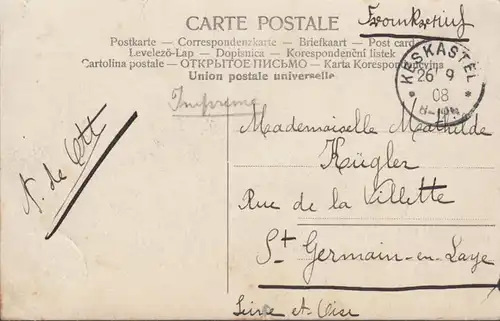 CARTE POSTALE
Frankreich
Postkarte — Correspondenzkarte — Briefkaart — Post card
Levelező-Lap — Dopisnica — Korespondenční listek
Cartolina postale — ОТКРЫТОЕ ПИСЬМО — Karta Korespondencyjna
Union postale universelle
KESKASTEL
26 9
08
Imprimé
Mademoiselle Mathilde
Kügler
Rue de la Villette
St Germain-en-Laye
Seine et Oise
N. de